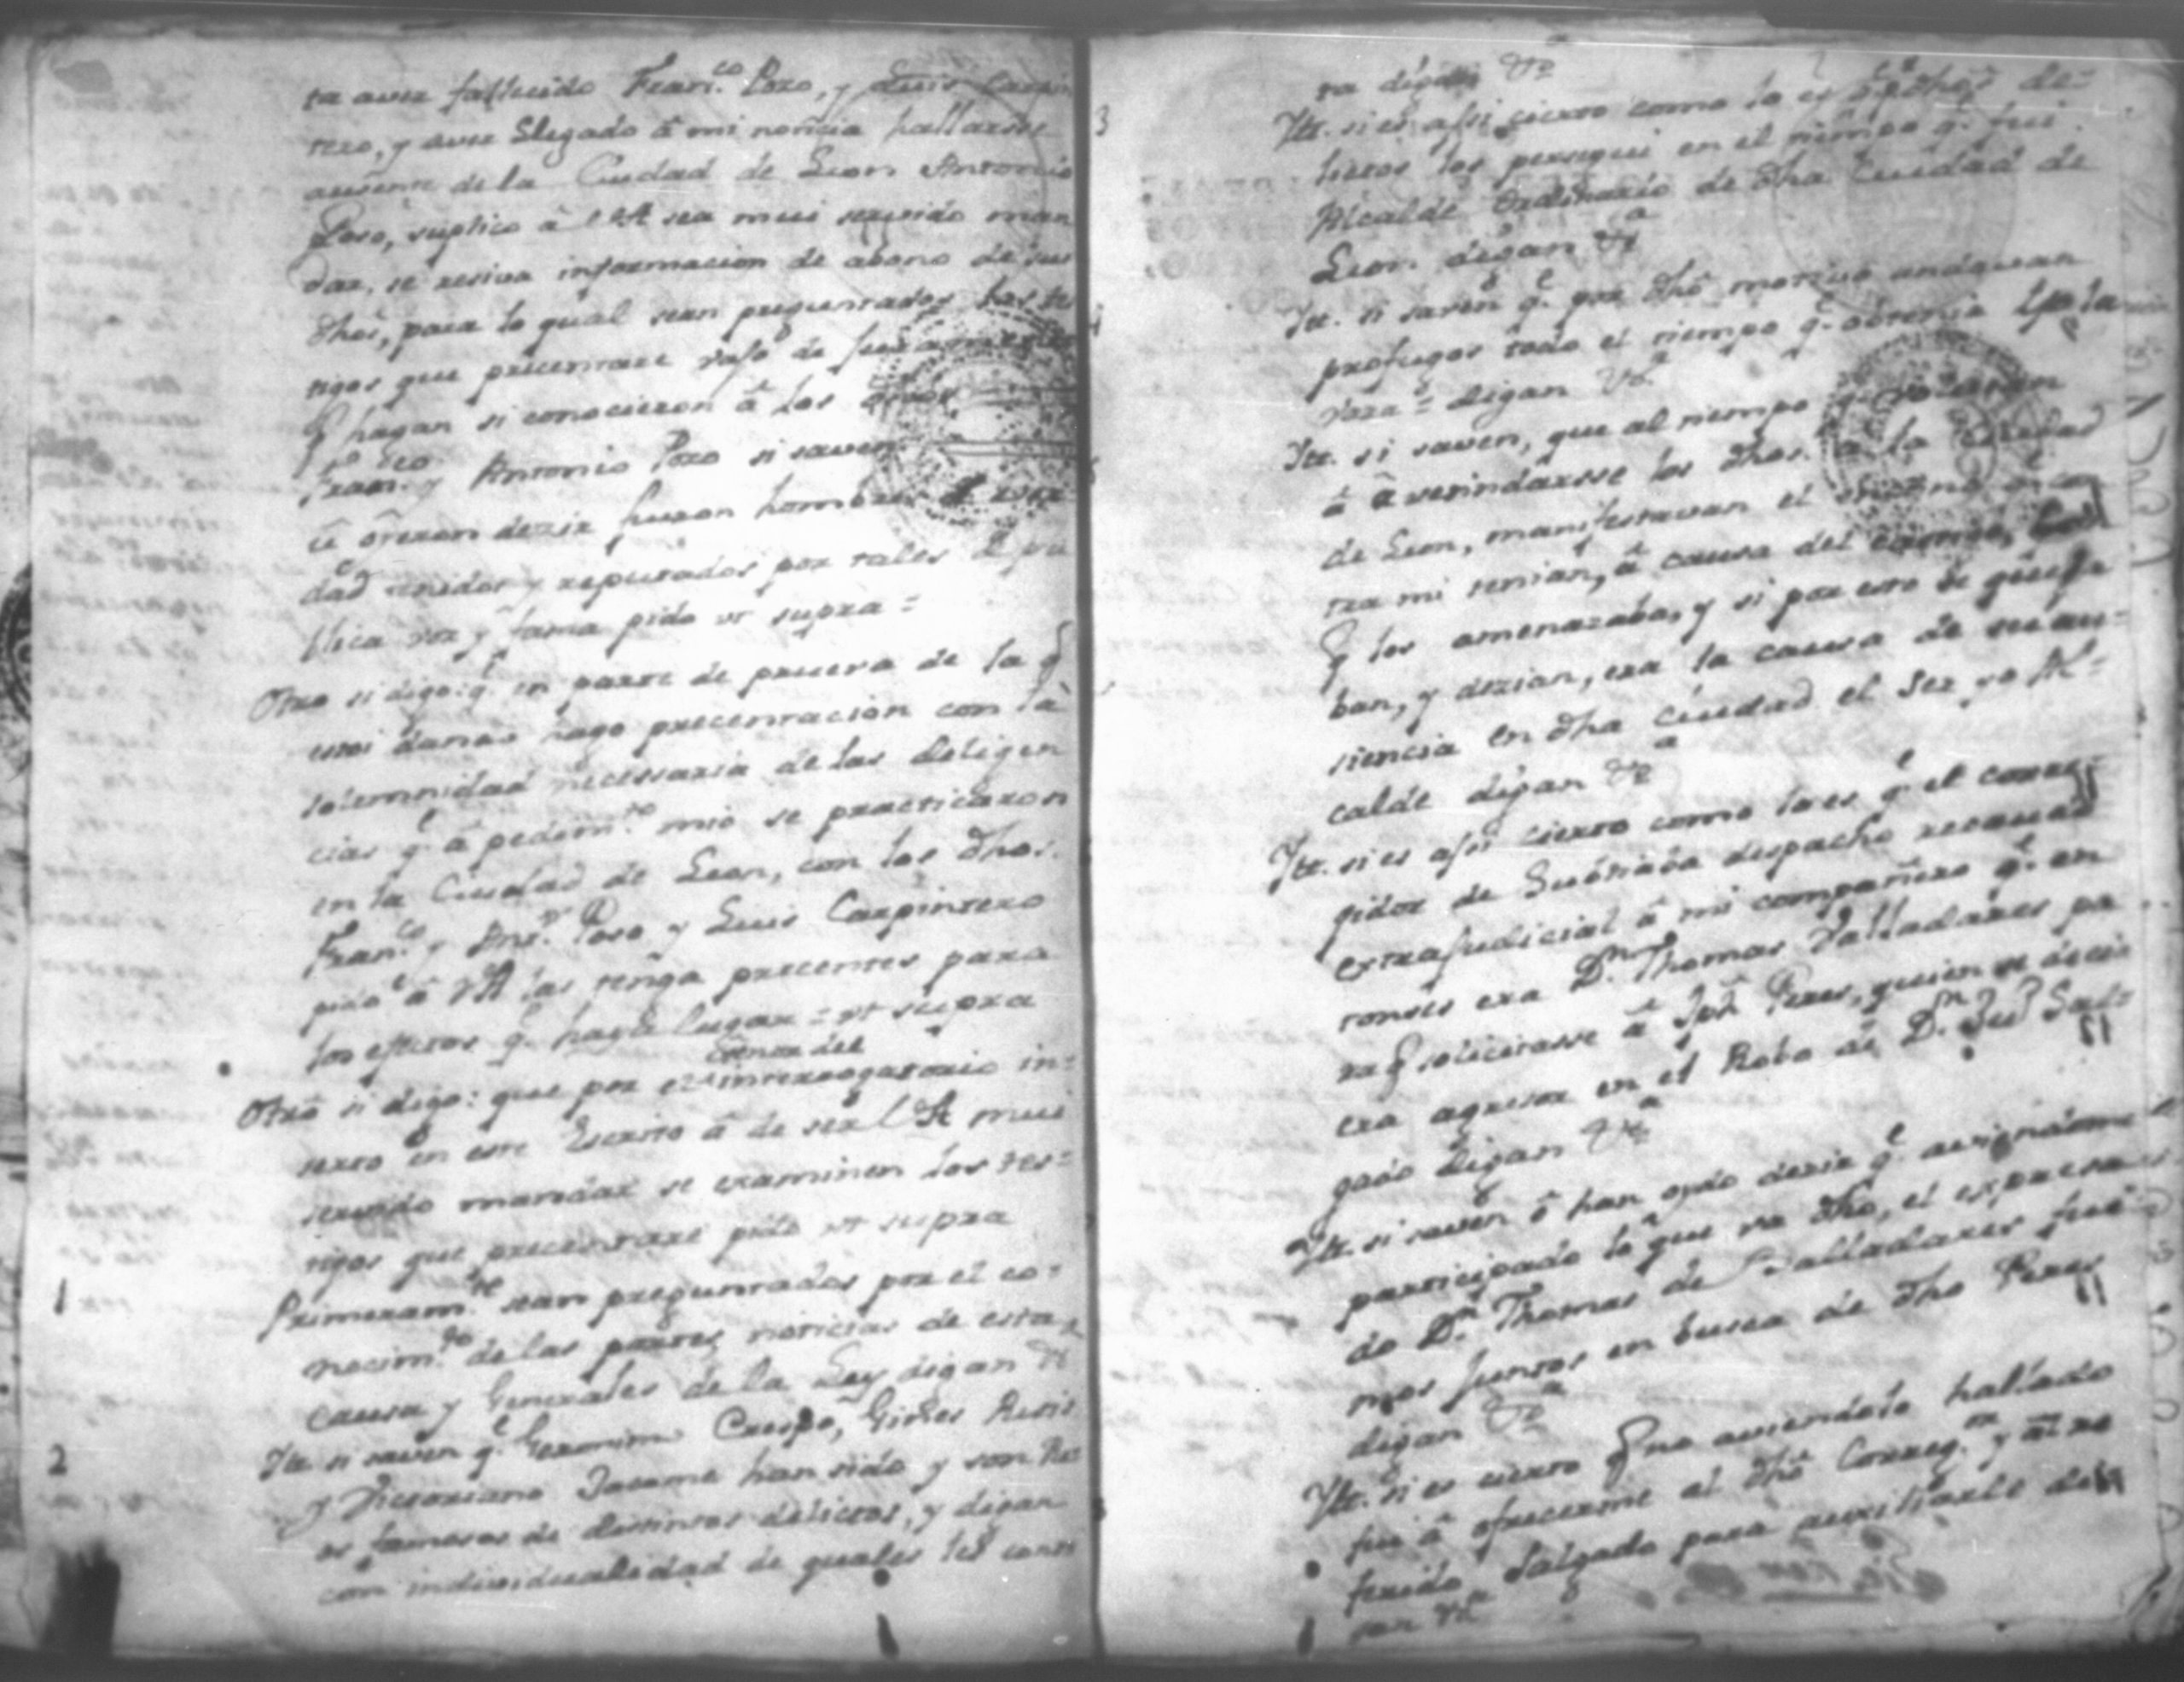 ta aver fallecido Fran.co Pozo, y Luis Carpin
tero, y aver llegado â mi noticia hallarse
ausente de la Ciudad de Leon Antonio
Poso, suplico â VA sea mui servido man
dar, se resiva informacion de abono de sus
dhos, para lo qual sean preguntados los tes
tigos que precentare vajo de juramento
q̃ hagan si conocieron â los
Fran.co y Antonio Pozo si saven
ũ ôyeron dezir fueron hombres de ver
dad tenidos y reputados por tales de pu
blica voz y fama pido vt supra =
Otro si digo: q.e en parte de prueva de la q̃
estoi dando hago precentacion con la
solemnidad necessaria de las diligen
cias q.e â pedim.to mio se practicaron
en la Ciudad de Leon, con los dhos.
Fran.co y Ant.o Poso y Luis Carpintero
pido â VA las tenga precentes para
los efectos q.e haya lugar = vt supra
thenor del
Otro si digo: que por el interrogatorio in=
serto en este Escrito â de ser VA mui
servido mandar se examinen los tes=
tigos que precentare pido vt supra
1 Primeram.te sean preguntados por el co=
nocim.to de las partes noticias de esta
causa y Generales de la Ley digan
2 Ytt. si saven q.e Geronimo Crespo, Gines Ruis
y Victoriano Jacome han sido y son Re
os famosos de distintos delictos, y digan
con individualidad de quales les cons
ta digan Vª
3 Ytt. si es assi cierto como lo es q.e p.r dhos de=
lictos los persegui en el tiempo q.e fui
Alcalde Ordinario de dha Ciudad de
Leon digan Vª
4 Ytt. si saven q.e por dho motivo andavan
profugos todo el tiempo q.e obtenia Yo la
vara = digan Vª
Ytt. si saven, que al tiempo q.e
â averindarsse los dhos. a la Ciudad
de Leon, manifestavan el
tra mi tenian, â causa del
q̃ los amenazaba, y si por esto se queja
ban, y dezian, era la causa de su au=
siencia en dha Ciudad el ser yo Al=
calde digan Vª
Ytt. si es assi cierto como lo es q.e el corre=
gidor de Subtiaba despacho recaudo
extrajudicial â mi compañero q.e en
tonses era D.n Thomas Valladares pa
ra q̃ solicitasse â Jph Peres, quien se decia
era agresor en el Robo de D.n Jul Sal=
gado digan Vª
Ytt. si saven ô han oydo dezir q.e
participado lo que va dho, el expresa
do D.n Thomas de Valladares fui
mos juntos en busca de dho Peres
digan Vª
Ytt. Si es cierto q̃ no aviendolo hallado
fui â ofrecerme al dho Correg.or y al re
ferido Salgado para auxiliarle